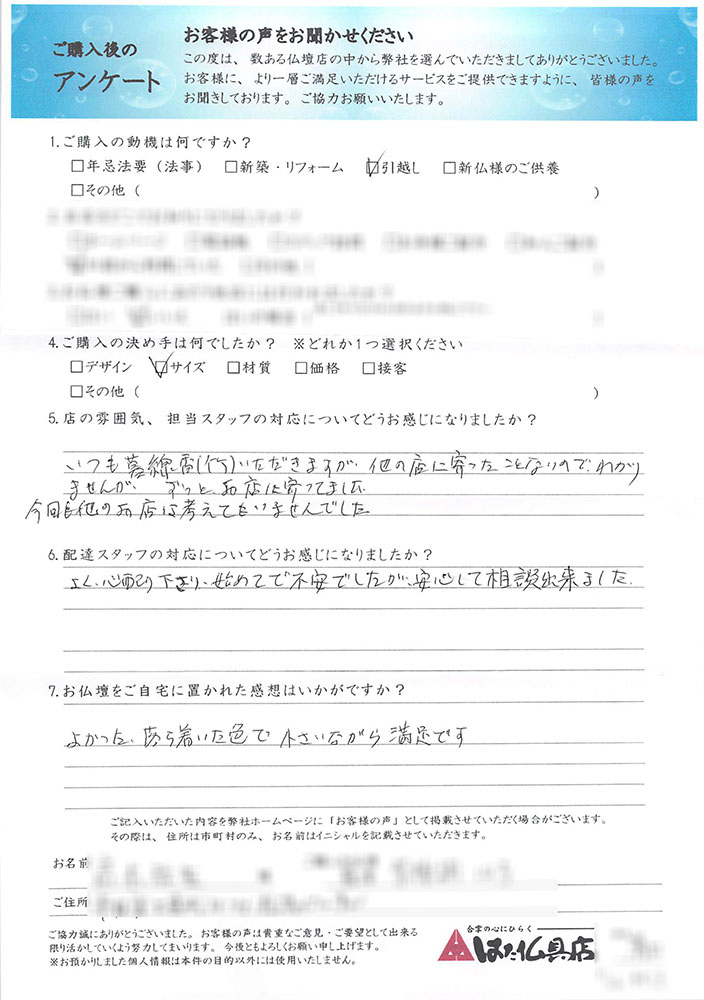 ご購入後の
アンケート
お客様の声をお聞かせください
この度は、数ある仏壇店の中から弊社を選んでいただきましてありがとうございました。
お客様に、より一層ご満足いただけるサービスをご提供できますように、皆様の声を
お聞きしております。ご協力お願いいたします。
1.ご購入の動機は何ですか？
□年忌法要（法事） □新築・リフォーム ☑引越し □新仏様のご供養
□その他（ ）
4.ご購入の決め手は何でしたか？ ※どれか1つ選択ください
□デザイン ☑サイズ □材質 □価格 □接客
□その他（ ）
5.店の雰囲気、担当スタッフの対応についてどうお感じになりましたか？
いつも 線香 いただきますが、他の店に寄ったことないので、わかり
ませんが、ずっとお店に寄ってました
今回も他のお店は考えてもいませんでした
6.配達スタッフの対応についてどうお感じになりましたか？
よく心配り下さり、始めてで不安でしたが、安心して相談出来ました.
7.お仏壇をご自宅に置かれた感想はいかがですか？
よかった、落ち着いた色で 小さいながら満足です
ご記入いただいた内容を弊社ホームページに「お客様の声」として掲載させていただく場合がございます。
その際は、住所は市町村のみ、お名前はイニシャルを記載させていただきます。
お名前
ご住所
ご協力誠にありがとうございました。お客様の声は貴重なご意見・ご要望として出来る
限り活かしていくよう努力してまいります。今後ともよろしくお願い申し上げます。
※お預かりしました個人情報は本件の目的以外には使用いたしません。
合掌の心にひらく
はた仏具店